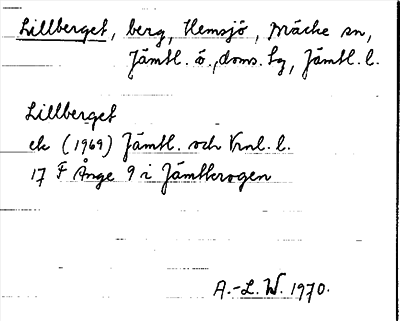 Lillberget, berg, Hemsjö, Bräcke sn,
Jämtl. ö., doms. hg, Jämtl. l.
Lillberget
ek (1969) Jämtl. och Vnl. l.
17 F Ånge 9 i Jämtkrogen
A.-L. W. 1970.